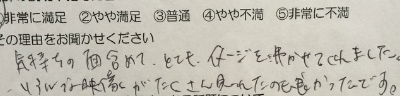 ①非常に満足 ②やや満足 ③普通 ④やや不満 ⑤非常に不満
その理由をお聞かせください
気持ちの面含めて、とても イメージを沸かせてくれました。
映像がたくさん見れたのも良かったです。